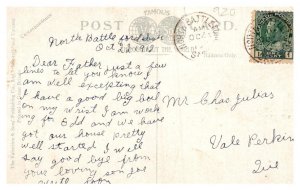 POST CARD
FAMOUS
920
North Battleford Sask
Oct 22 1912
Dear Father just a few
lines to let you know I
am well excepting that
I have a good big boil
on my wrist I am work
ing for Ed and we have
got our house pretty
well started I will
say good bye from
your loving son Jos
write soon
Mr Chas Julias
Vale Perkins
Que